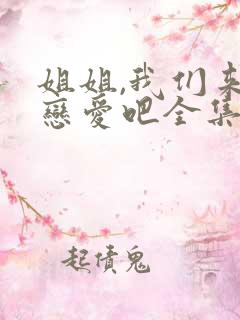 姐姐,我们来
戀愛吧全集
起债鬼